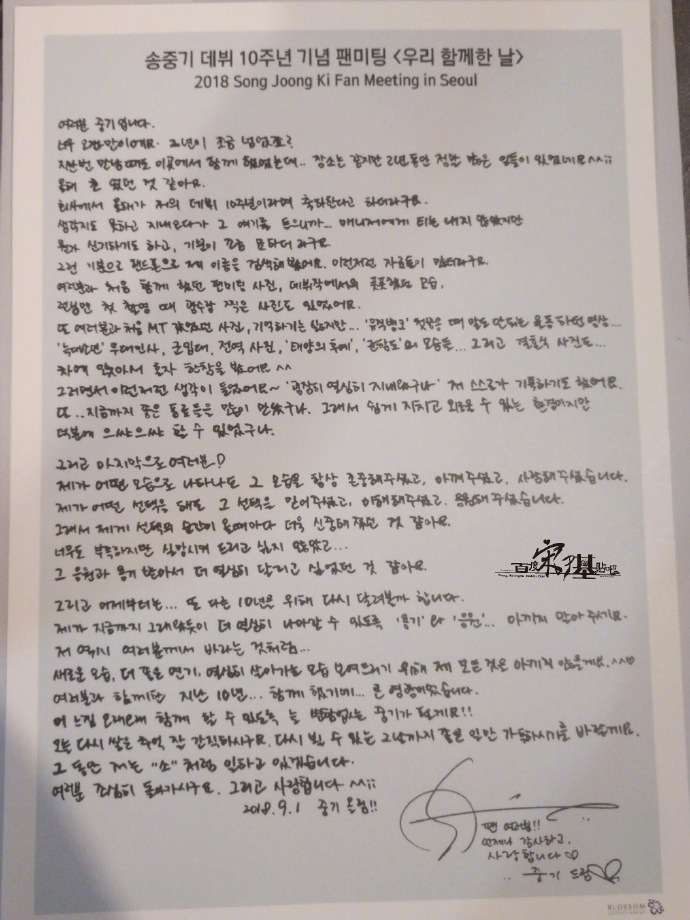 송중기 데뷔 10주년 기념 팬미팅 <우리 함께한 날>
2018 Song Joong Ki Fan Meeting in Seoul
여러분 중기입니다.
너무 오랜만이에요. 2년이 조금 넘었죠?
지난번 만남 때도 이곳에서 함께 했었는데.. 장소는 같지만 2년동안 정말 많은 일들이 있었네요 ^^;;
올해 초 였던 것 같아요.
회사에서 올해가 저의 데뷔 10주년이라며 축하한다고 하더라구요.
생각지도 못하고 지내오다가 그 얘기를 드으니까... 매니저에게 티는 내지 않았지만
뭔가 신기하기도 하고, 기분이 묘하더라구요.
그런 기분으로 핸드폰으로 제 이름을 검색해 봤어요. 이런저런 자료들이 많더라구요.
여러분과 처음 함께 했던 팬미팅 사진, 데뷔작에서의 풋풋했던 모습,
런닝맨 첫 촬영 때 광수랑 찍은 사진도 있었어요.
또 여러분과 처음 MT 갔었던 사진, 기억하기는 싫지만... '뮤직뱅크' 첫방송 때 말도 안되는 율동 하던 영상...
'늑대소년' 무대인사, 군입대, 전역 사진, '태양의 후예', '군함도'의 모습들... 그리고 결혼식 사진도...
차에 앉아서 혼자 한참을 봤어요 ^^
그러면서 이런저런 생각이 들었어요~ '굉장히 열심히 지내왔구나' 저 스스로가 기특하기도 했어요.
또.. 지금까지 좋은 동료들을 많이 만났구나. 그래서 쉽게 지치고 외로울 수 있는 환경이지만
덕분에 으쌰으쌰 할 수 있었구나.
그리고 마지막으로 여러분!?
제가 어떤 모습으로 나타나도 그 모습을 항상 존중해주셨고, 아껴주셨고, 사랑해주셨습니다.
제가 어떤 선택을 해도 그 선택을 믿어주셨고, 이해해주셨고, 응원해 주셨습니다.
그래서 제게 선택의 순간이 올때마다 더욱 신중해 졌던 것 같아요.
너무도 부족하지만 실망시켜 드리고 싶지 않았고...
그 응원과 용기 받아서 더 열심히 달리고 싶었던 것 같아요.
百度宋仲基貼吧
그리고 어제부터는... 또 다른 10년을 위해 다시 달려볼까 합니다.
제가 지금까지 그래왔듯이 더 열심히 나아갈 수 있도록 '용기'와 '응원'... 아끼지 말아 주세요.
저 역시 여러분께서 바라는 것처럼...
새로운 모습, 더 좋은 연기, 열심히 살아가는 모습 보여드리기 위해 제 모든 것을 아끼지 않을게요.^^♡
여러분과 함께한 지난 10년... 함께 했기에... 큰 영광이었습니다.
이 느낌 오래오래 함께 할 수 있도록 늘 변함없는 중기가 될게요!!
오늘 다시 쌓은 추억 잘 간직하시구요. 다시 뵐 수 있는 그날까지 좋은 일만 가득하시기를 바랄게요.
그 동안 저는 "소"처럼 일하고 있겠습니다.
여러분 조심히 돌아가시구요. 그리고 사랑합니다 ^^;;
2018.9.1 중기 올림!!
팬 여러분!!
언제나 감사하고,
사랑합니다♡
.. 중기 드림
BLOSSOM